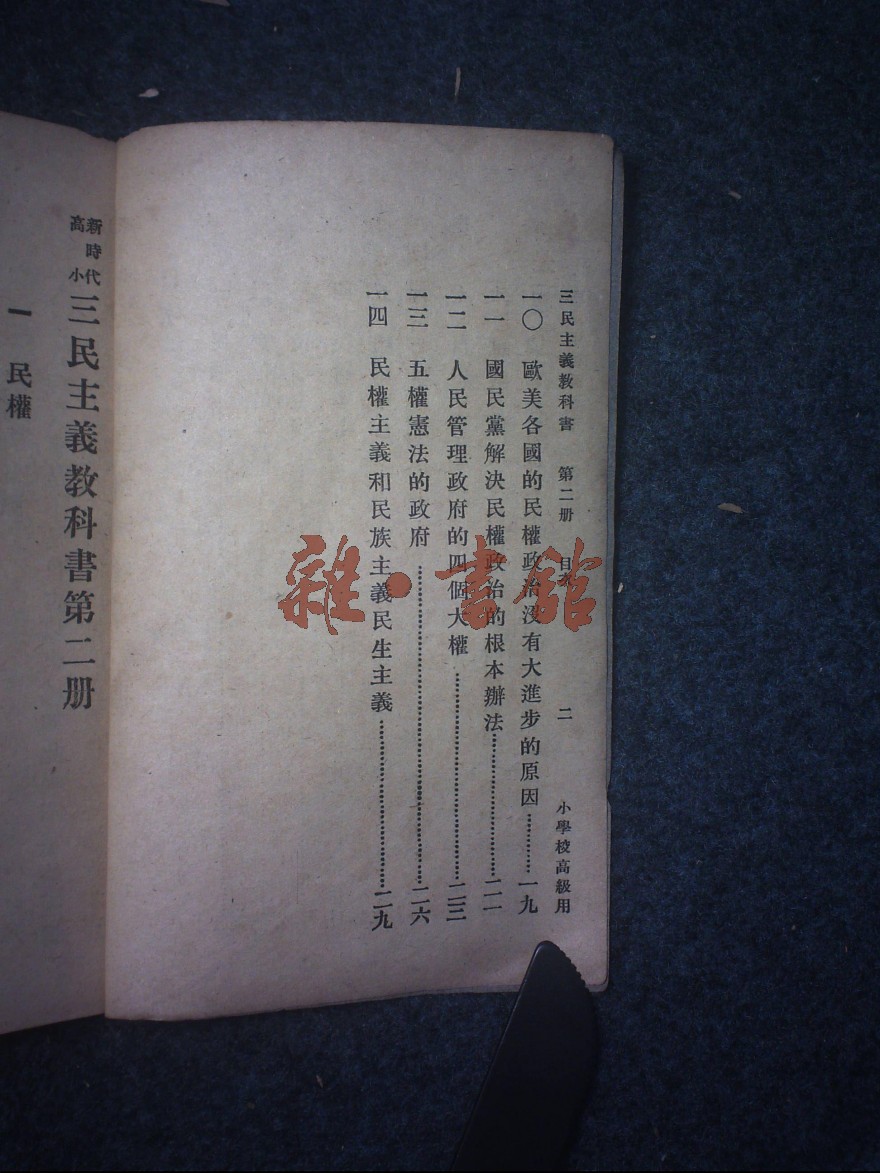 三民主義教科書 第二册 目次 二 小學校高級用
一〇 歐美各國的民權政治沒有大進步的原因…………一九
一一 國民黨解決民權政治的根本辦法…………二一
一二 人民管理政府的四個大權…………二三
一三 五權憲法的政府…………二六
一四 民權主義和民族主義民生主義…………二九
新時代高小 三民主義教科書第二册
一 民權
雜·書館